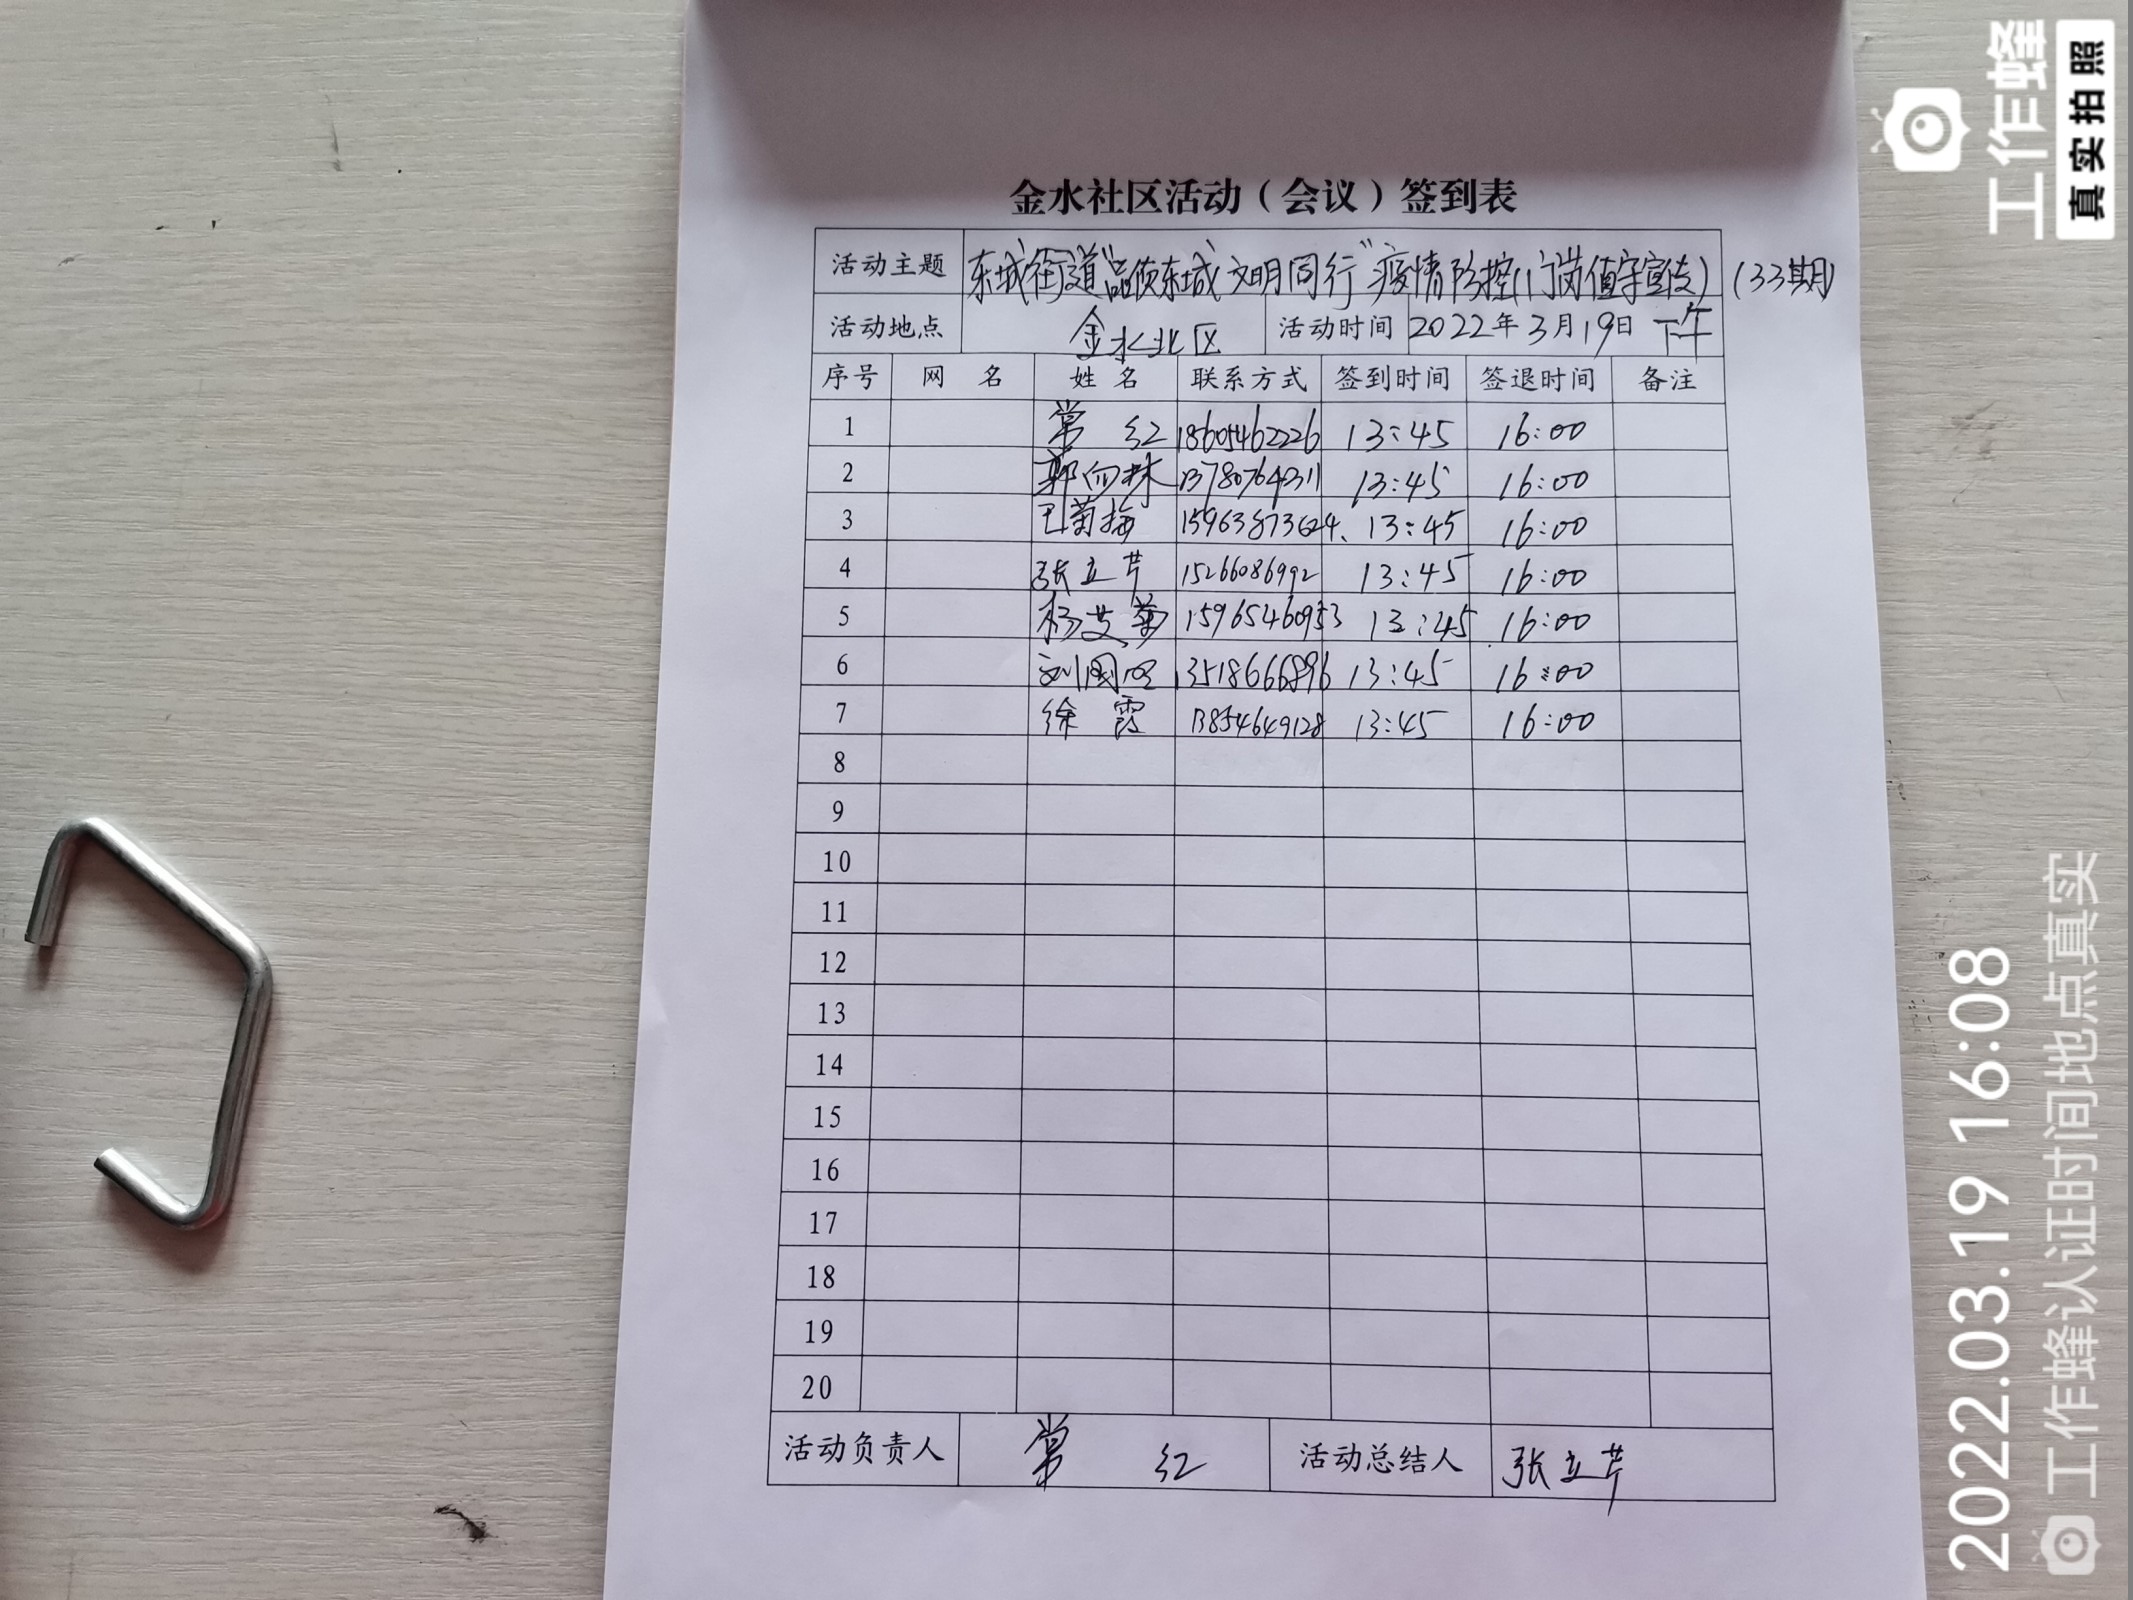 金水社区活动（会议）签到表
活动主题 东城街道“品质东城 文明同行”疫情防控(门岗值守宣传)(33期)
活动地点 金水北区 活动时间 2022年3月19日 下午
序号 网 名 姓 名 联系方式 签到时间 签退时间 备注
1 常 红 18605462226 13:45 16:00
2 郭向林 13780764311 13:45 16:00
3 王菊梅 15963873624、 13:45 16:00
4 张立芹 15266086992 13:45 16:00
5 杨艾菊 15965460953 13:45 16:00
6 刘国 13518666896 13:45 16:00
7 徐 霞 13854649128 13:45 16:00
8
9
10
11
12
13
14
15
16
17
18
19
20
活动负责人 常 红 活动总结人 张立芹
工作蜂
真实拍照
2022.03.19 16:08
工作蜂认证时间地点真实